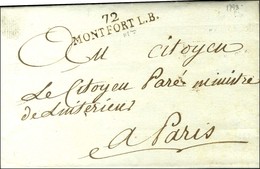 72
MONTFORT L.B.
Au Citoyen
Le Citoyen Paré ministre
de Linterieur
a Paris